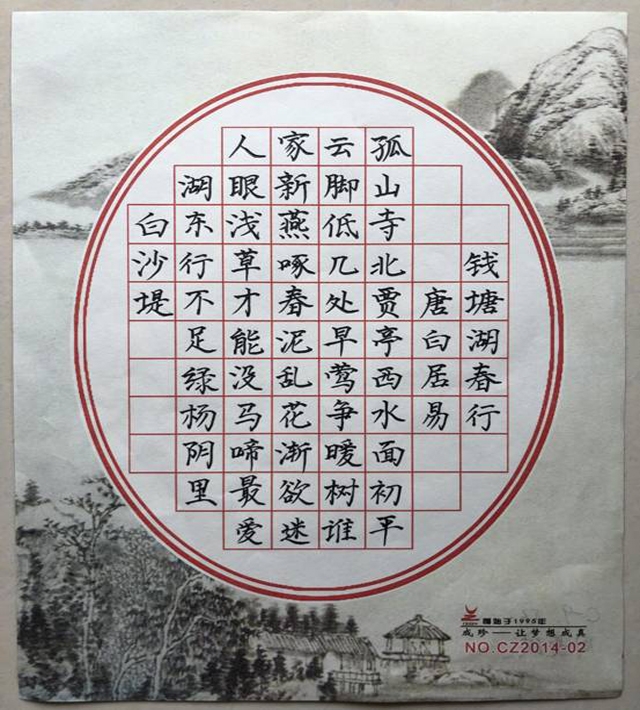 钱塘湖春行
唐白居易
孤山寺北贾亭西水面初平
云脚低几处早莺争暖树谁
家新燕啄春泥乱花渐欲迷
人眼浅草才能没马啼最爱
湖东行不足绿杨阴里
白沙堤
始于1995年
成珍——让梦想成真
NO.CZ2014-02